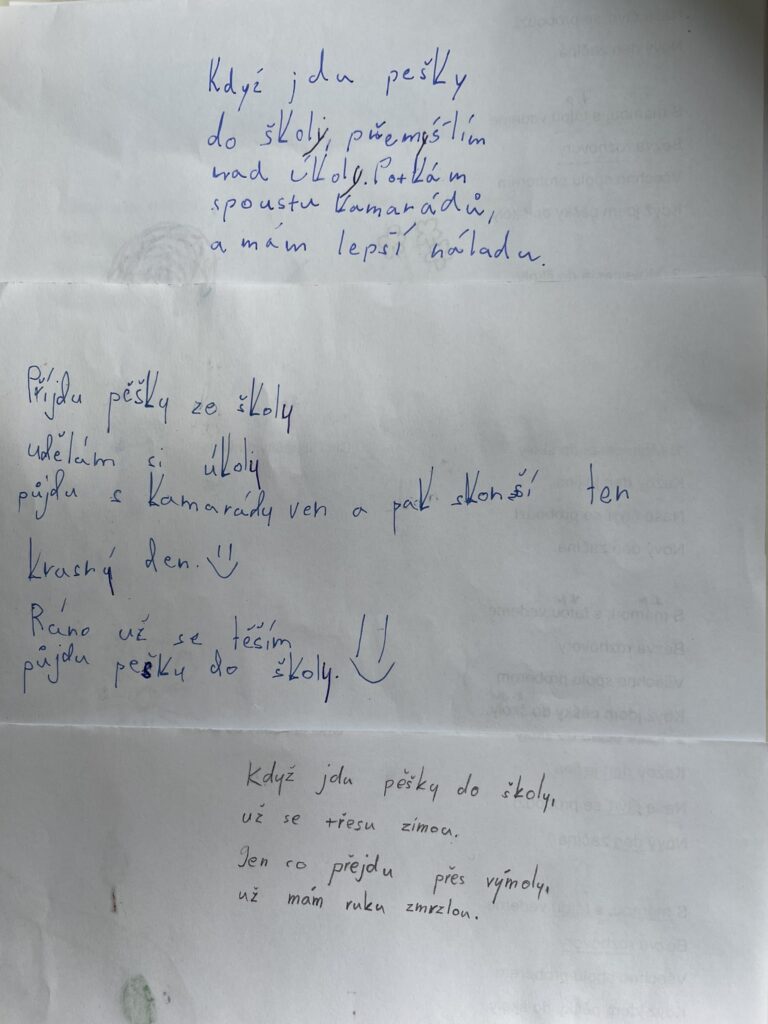 Když jdu pešky
do školy, přemýšlím
nad úkoly. Potkám
spoustu kamarádů,
a mám lepší náladu.
Příjdu pěšky ze školy
udělám si úkoly
půjdu s kamarády ven a pak skonší ten
krasný den.
Ráno už se těším
půjdu pešky do školy.
Když jdu pěšky do školy,
už se třesu zimou.
Jen co přejdu přes výmoly,
už mám ruku zmrzlou.